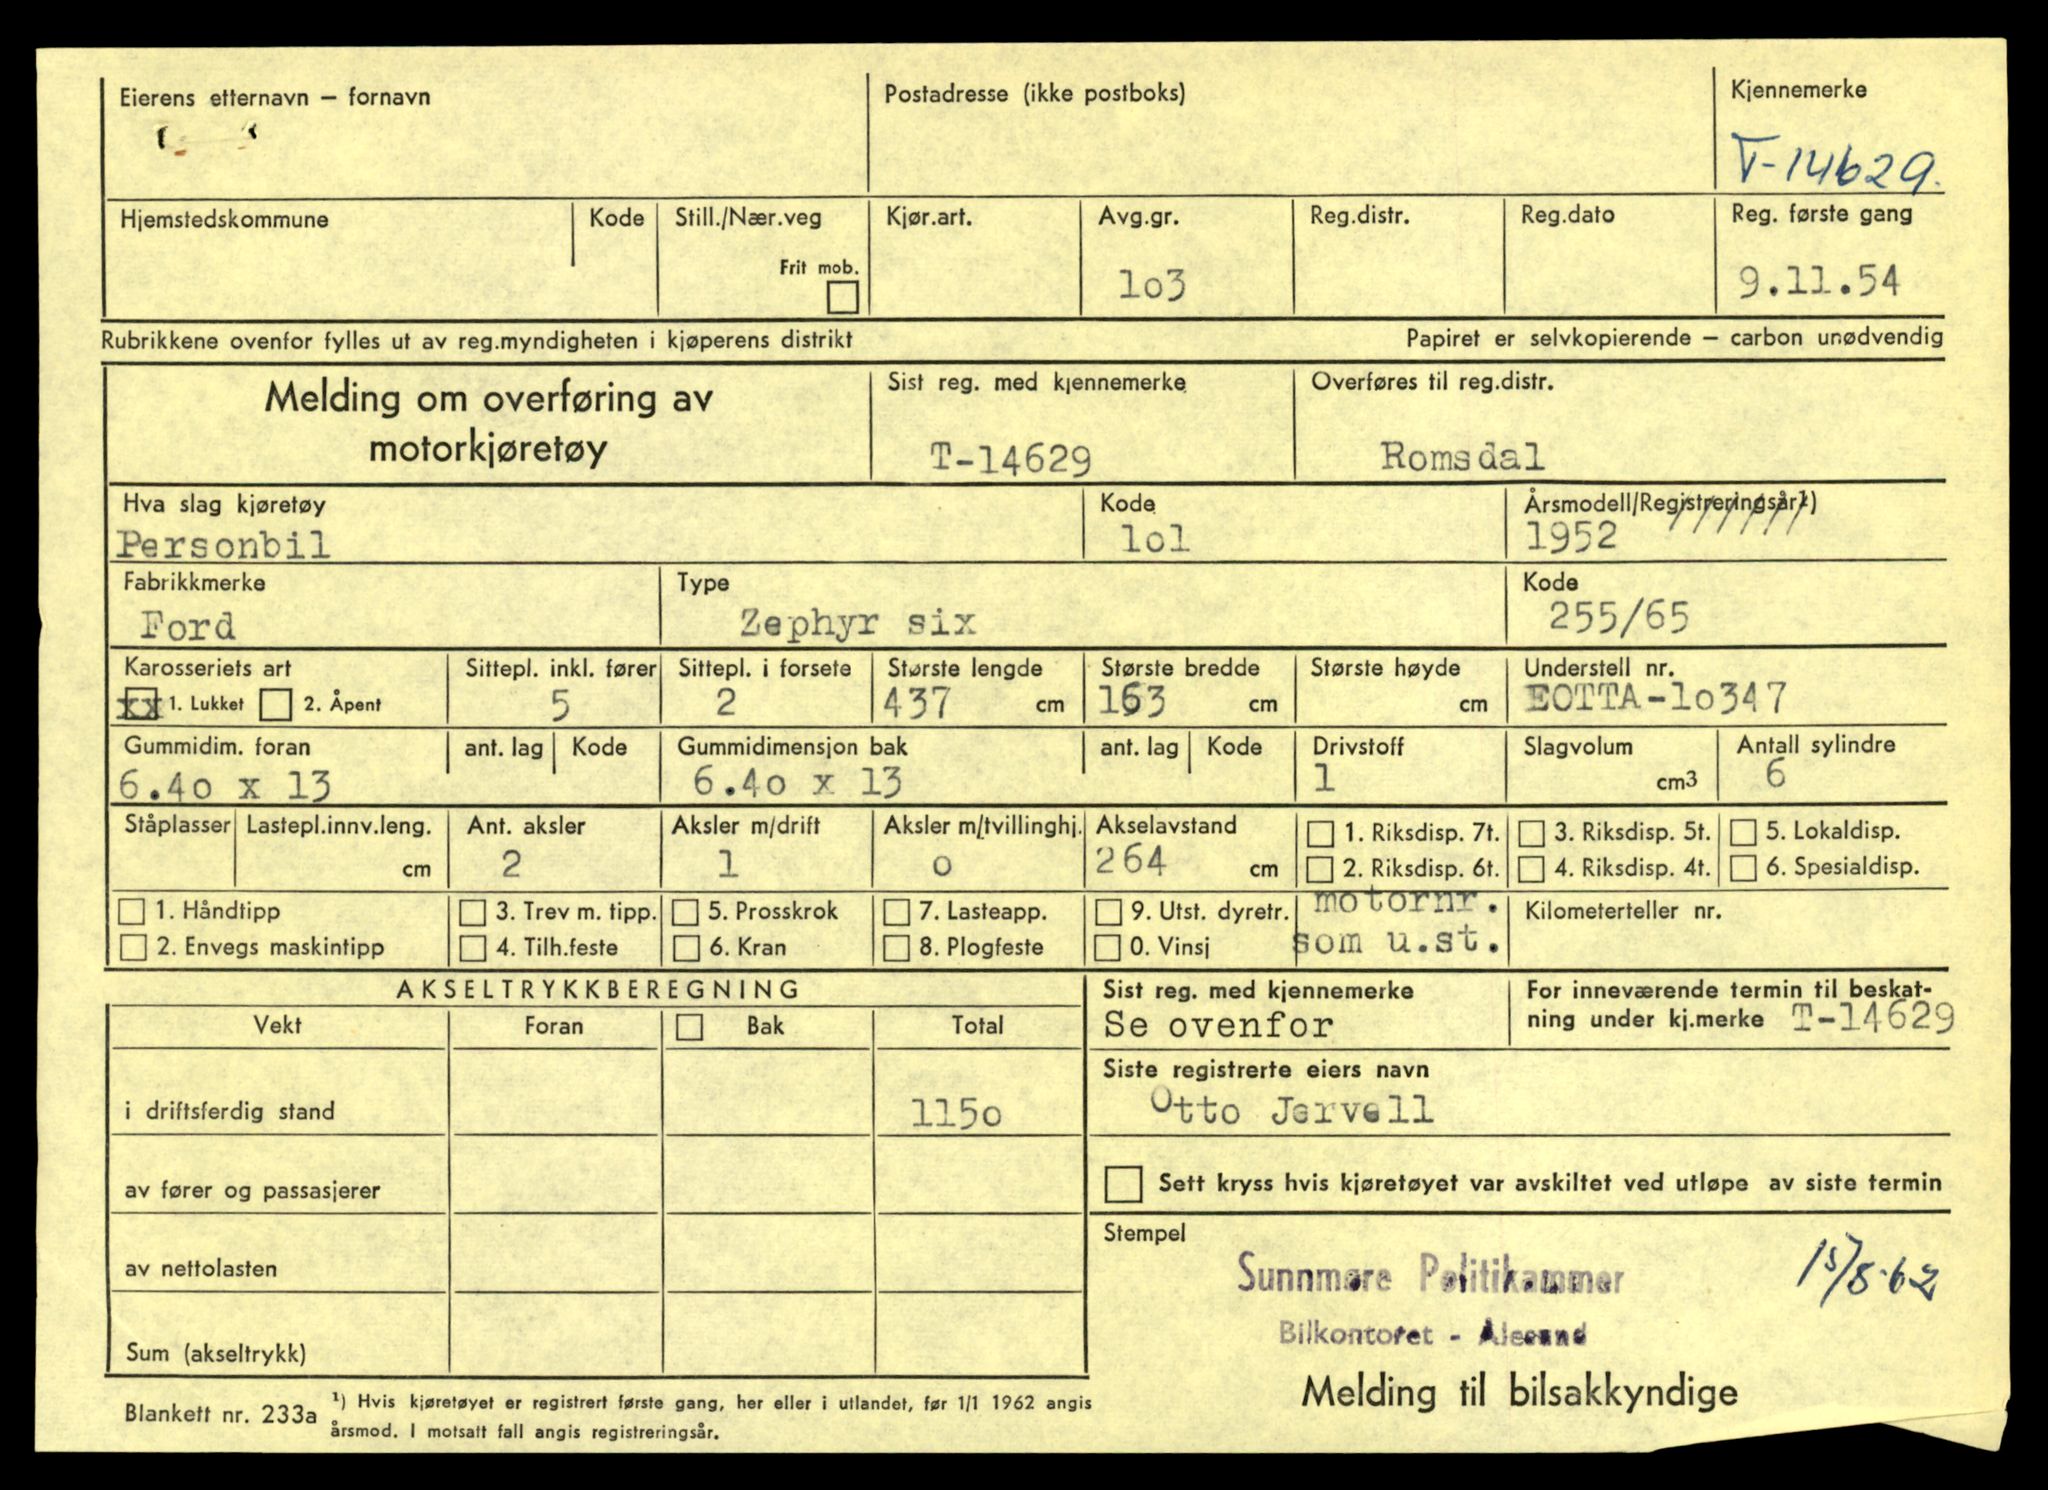 Eierens etternavn – fornavn
Postadresse (ikke postboks)
Kjennemerke
T-14629.
Hjemstedskommune
Kode
Still./Nær.veg
Frit mob.
Kjør.art.
Avg.gr.
lo3
Reg.distr.
Reg.dato
Reg. første gang
9.11.54
Rubrikkene ovenfor fylles ut av reg.myndigheten i kjøperens distrikt
Papiret er selvkopierende – carbon unødvendig
Melding om overføring av
motorkjøretøy
Sist reg. med kjennemerke
T-14629
Overføres til reg.distr.
Romsdal
Hva slag kjøretøy
Personbil
Kode
lol
Årsmodell/Registreringsår1)
1952
Fabrikkmerke
Ford
Type
Zephyr six
Kode
255/65
Karosseriets art
xx 1. Lukket 2. Åpent
Sittepl. inkl. fører
5
Sittepl. i forsete
2
Største lengde
437 cm
Største bredde
163 cm
Største høyde
cm
Understell nr.
EOTTA-lo347
Gummidim. foran
6.4o x 13
ant. lag
Kode
Gummidimensjon bak
6.4o x 13
ant. lag
Kode
Drivstoff
1
Slagvolum
cm3
Antall sylindre
6
Ståplasser
Lastepl.innv.leng.
cm
Ant. aksler
2
Aksler m/drift
1
Aksler m/tvillinghj.
o
Akselavstand
264 cm
1. Riksdisp. 7t.
2. Riksdisp. 6t.
3. Riksdisp. 5t.
4. Riksdisp. 4t.
5. Lokaldisp.
6. Spesialdisp.
1. Håndtipp
2. Envegs maskintipp
3. Trev m. tipp.
4. Tilh.feste
5. Prosskrok
6. Kran
7. Lasteapp.
8. Plogfeste
9. Utst. dyretr.
0. Vinsj
motornr.
som u.st.
Kilometerteller nr.
AKSELTRYKKBEREGNING
Vekt
Foran
Bak
Total
i driftsferdig stand
115o
av fører og passasjerer
av nettolasten
Sum (akseltrykk)
Sist reg. med kjennemerke
Se ovenfor
For inneværende termin til beskat-
ning under kj.merke T-14629
Siste registrerte eiers navn
Otto Jervell
Sett kryss hvis kjøretøyet var avskiltet ved utløpe av siste termin
Stempel
Sunnmøre Politikammer
Bilkontoret - Ålesund
15/8-62
Melding til bilsakkyndige
Blankett nr. 233a
1) Hvis kjøretøyet er registrert første gang, her eller i utlandet, før 1/1 1962 angis
årsmod. I motsatt fall angis registreringsår.